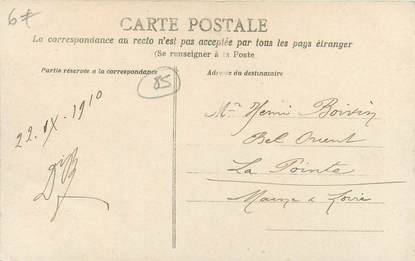 6€
CARTE POSTALE
La correspondance au recto n'est pas acceptée par tous les pays étranger
(Se renseigner à la Poste)
Partie réservée à la correspondance
Adresse du destinataire
85
22. IX. 1910
Mr Henri Boivin
Bel Orient
La Pointe
Maine & Loire